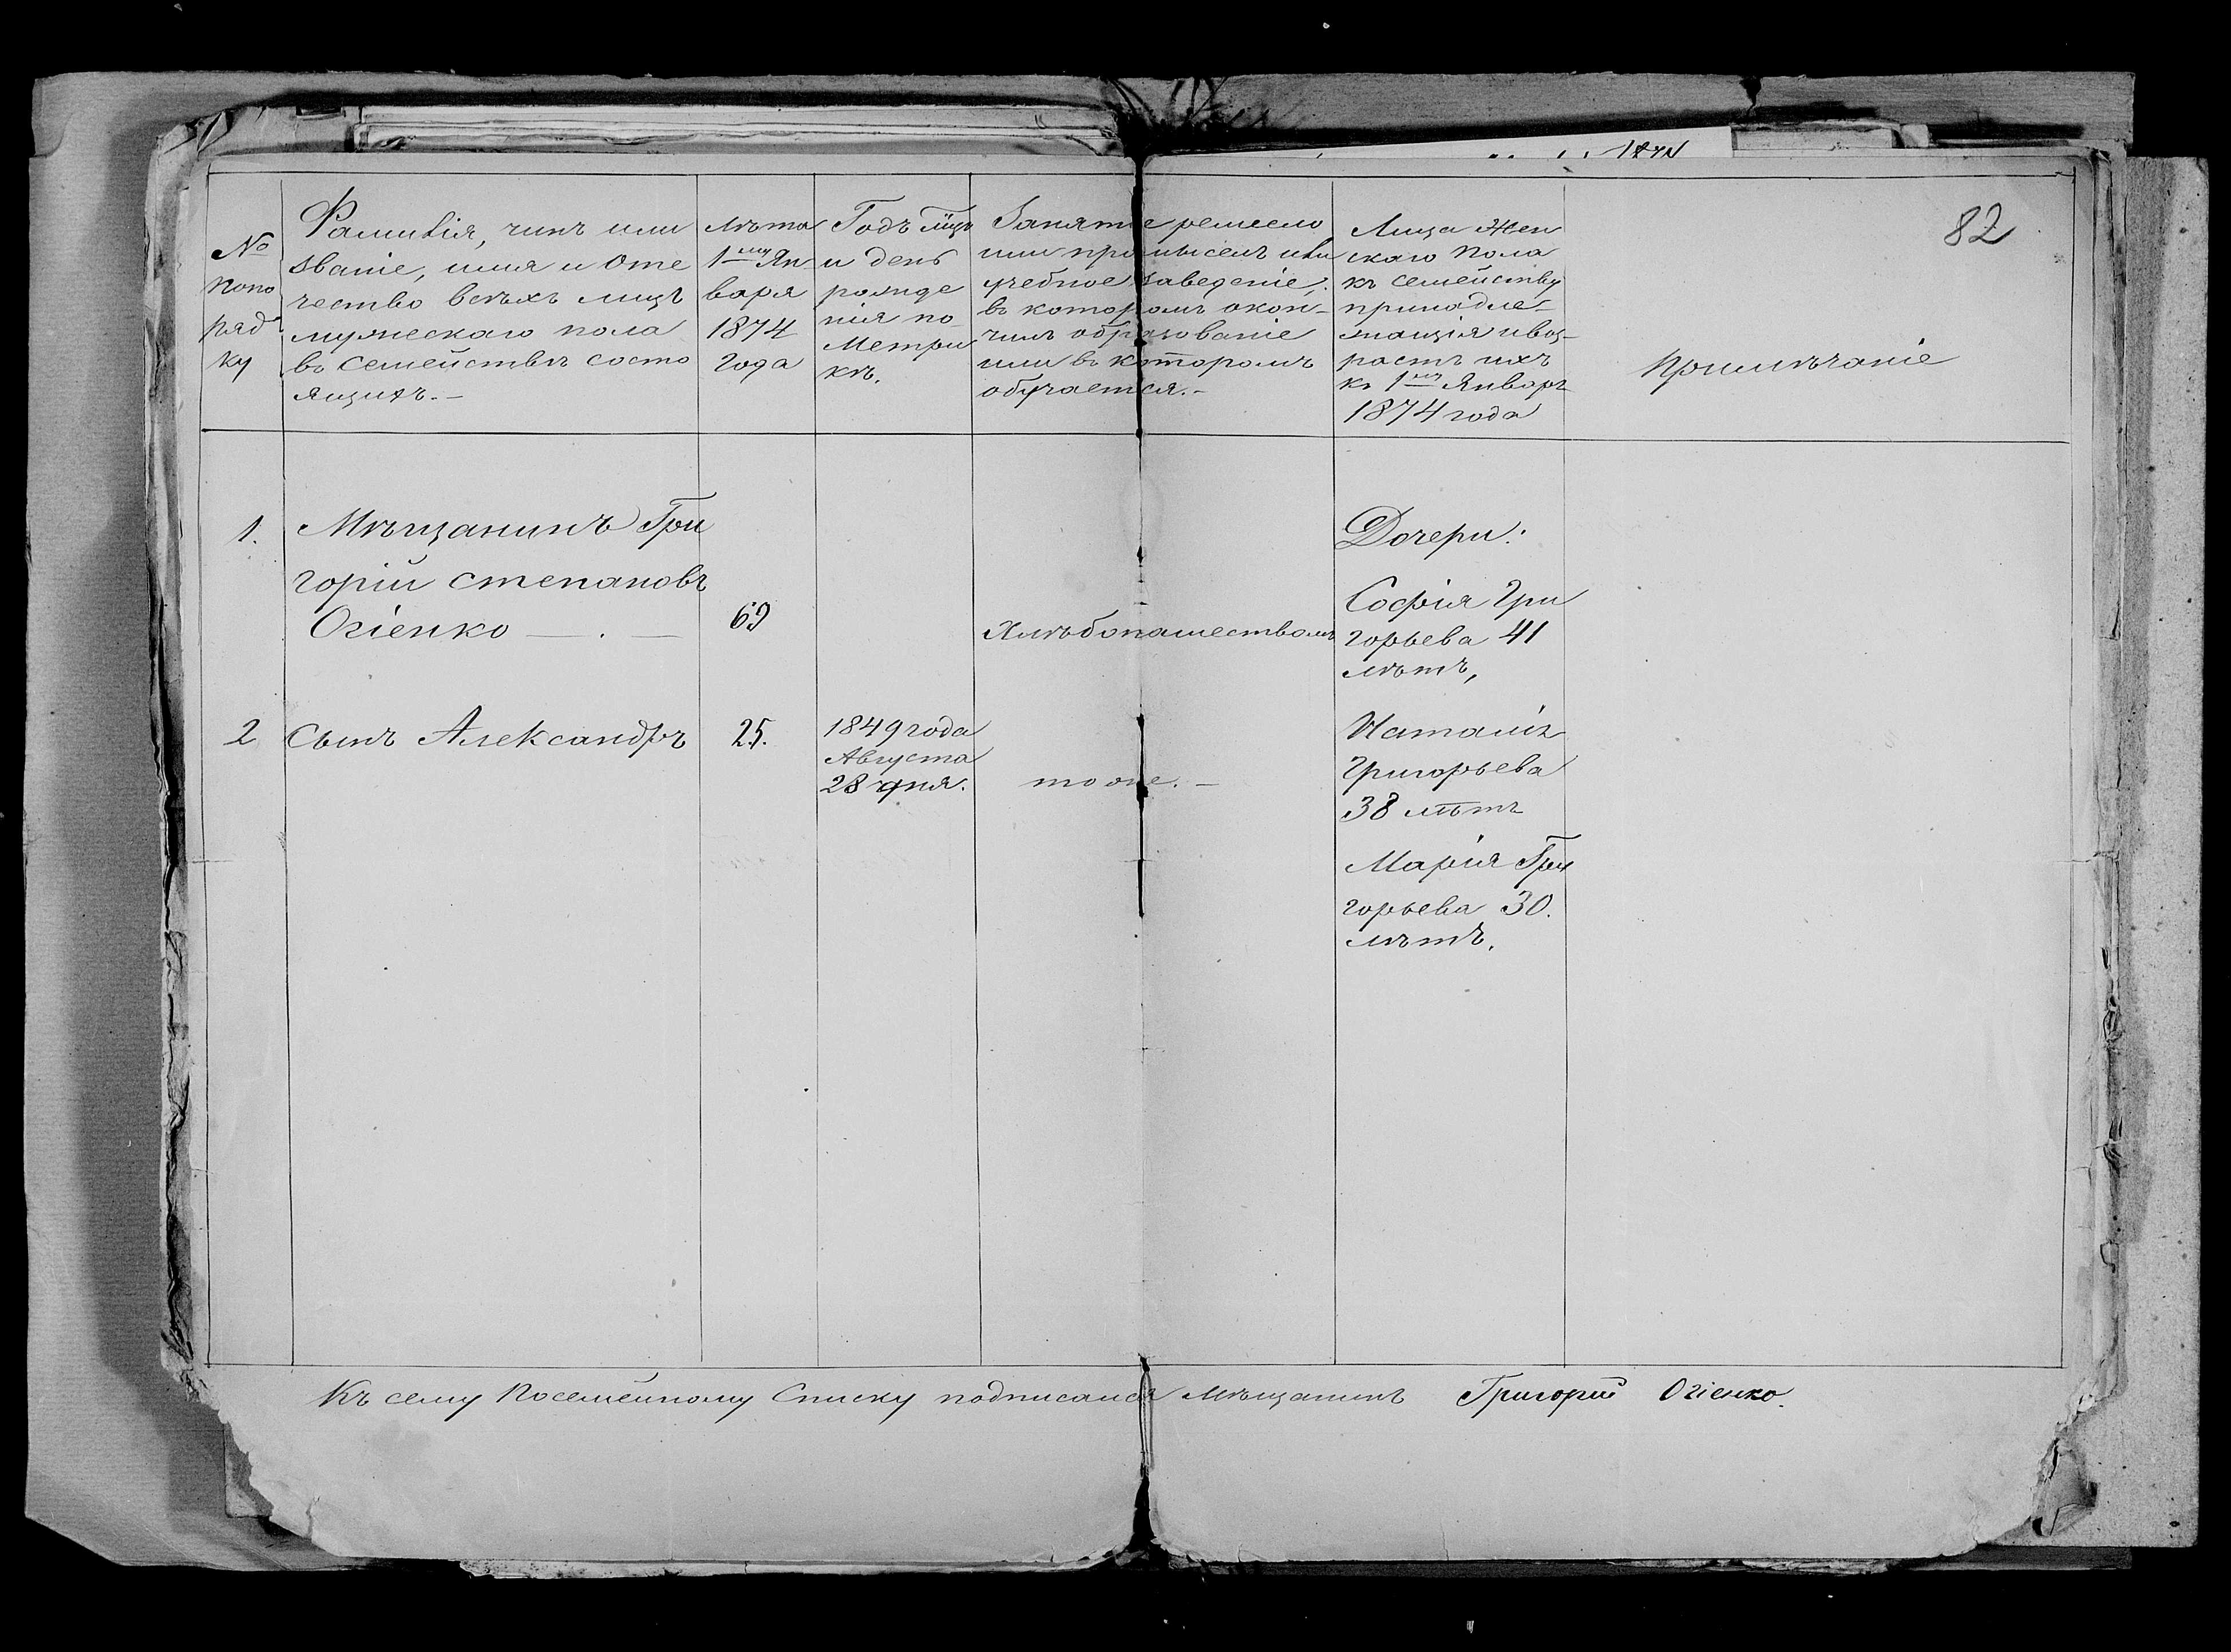 82
№
попо
ряд
ку
Фамилія, чинъ или
званіе, имя и Оте
чество всѣхъ лицъ
мужескаго пола
въ семействѣ состо
ящихъ.-
лѣта
1му Ян
варя
1874
года
Годъ мцъ
и день
рожде
нія по
Метри
кѣ.
Занятіе ремесло
или промыселъ или
учебное заведеніе,
въ которомъ окон-
чилъ образованіе
или въ которомъ
обучается.-
Лица Жен
скаго пола
къ семейству
принадле-
жащія и воз-
растъ ихъ
къ 1му Января
1874 года
Примѣчаніе
1.
Мѣщанинъ Гри
горій Степановъ
Огіенко — . —
69
Хлѣбопашествомъ
Дочери:
Софія Гри
горьева 41
лѣтъ,
2
Сынъ Александръ
25.
1849 года
Августа
28 дня.
тоже. -
Наталія
Григорьева
38 лѣтъ
Марія Гри
горьева 30.
лѣтъ.
Къ сему Посемейному Списку подписался Мѣщанинъ Григорій Огіенко.